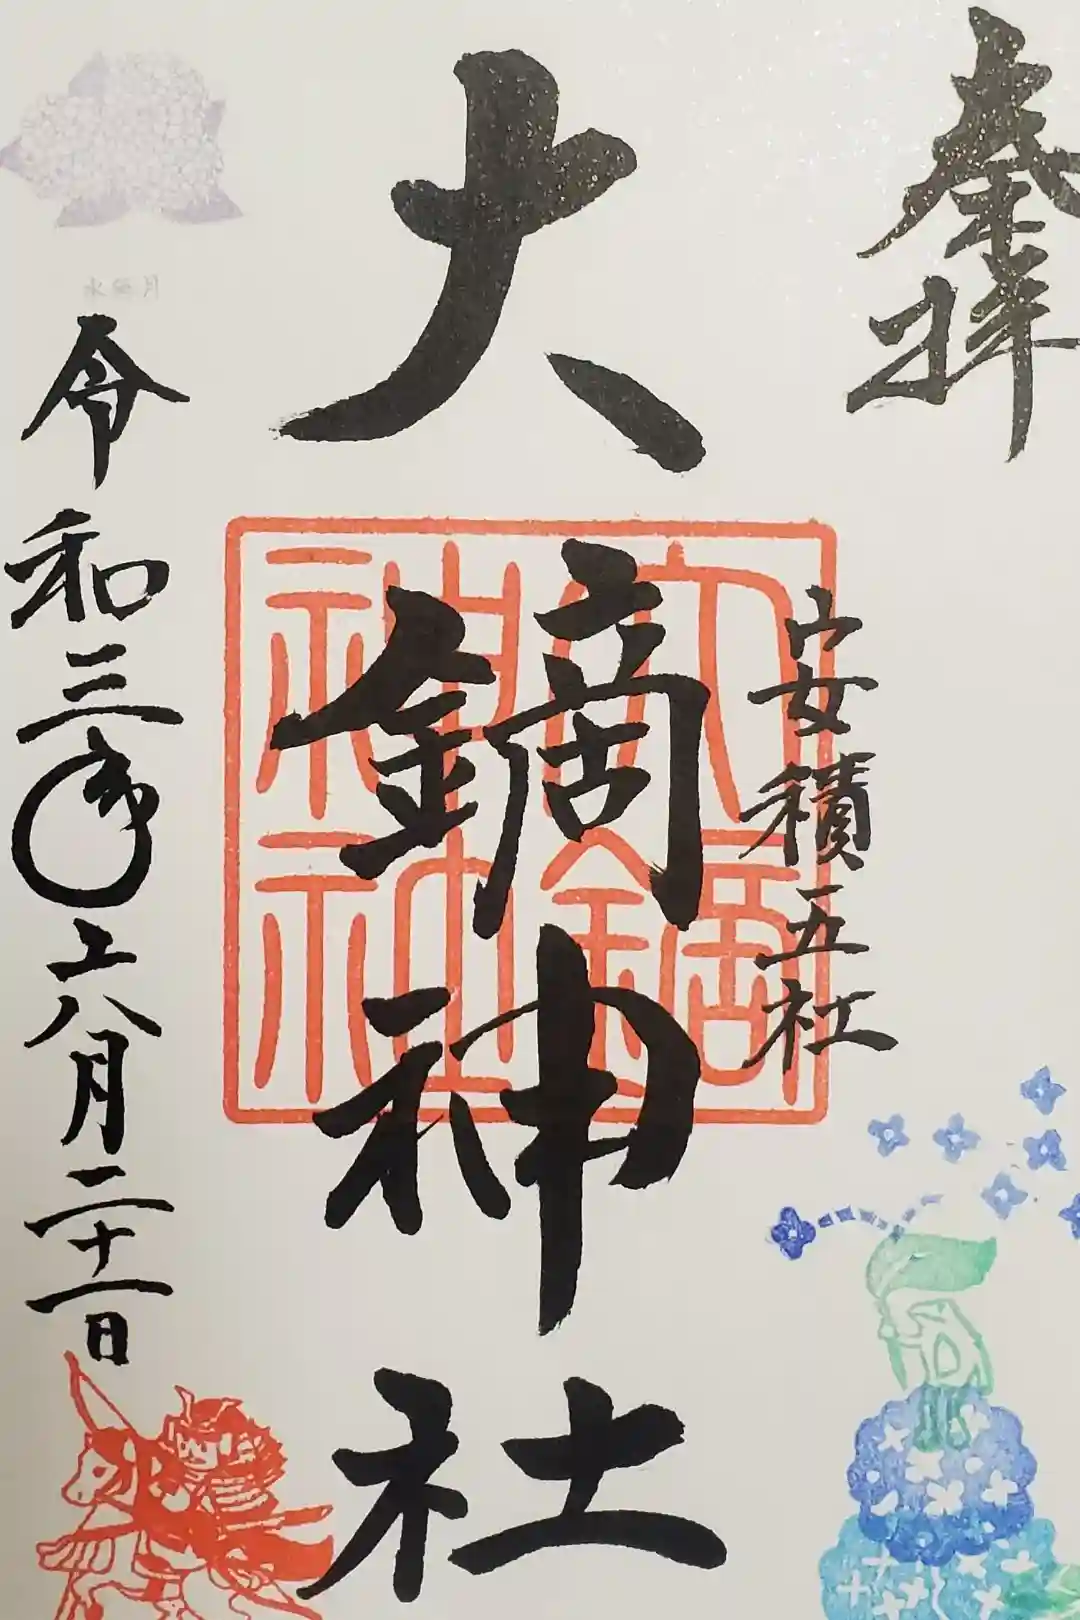 奉拝
安積五社
大鏑神社
大鏑神社
水無月
令和三年六月二十一日